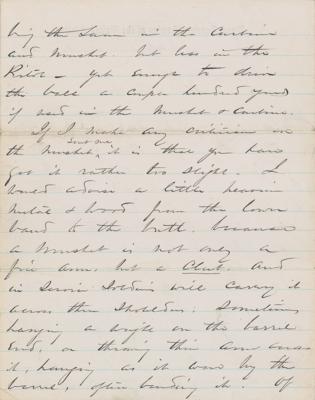 being the same in the Carbine
and Musket. but less in the
Pistol - yet enough to drive
the ball a couple hundred yards
if used in the Musket & Carbine.
If I make any criticism on
the Musket, it is that you have
got it rather too slight. I
would advise a little heavier
metal & wood from the lower
band to the butt. because
a Musket is not only a
fire arm, but a Club. And
in Service Soldiers will carry it
across their Shoulders. Sometimes
hanging a weight on the barrel
end, or throwing their arm across
it, hanging as it were by the
barrel, often bending it. Of